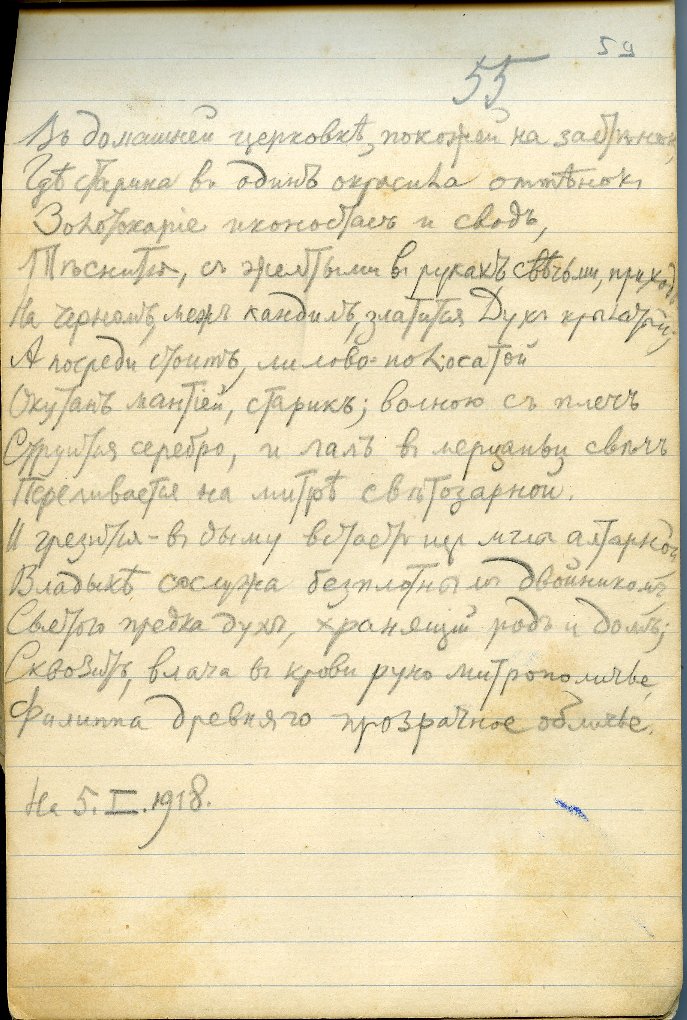 59
55
Въ домашней церковкѣ, похожей на застѣнокъ,
Гдѣ старина въ одинъ окрасила оттѣнокъ
Золотокаріе иконостасъ и сводъ,
Тѣснится, съ желтыми въ рукахъ свѣчьми, приходъ
На черномъ, межъ кандилъ, златится Духъ крылатый;
А посреди стоитъ, лилово-полосатой
Окутанъ мантіей, старикъ; волною съ плечъ
Струится серебро, и лалъ въ мерцаньи свѣчъ
Переливается на митрѣ свѣтозарной.
И грезится – въ дыму встаетъ изъ мглы алтарной
Владыкѣ сослужа безплотнымъ двойникомъ,
Святого предка духъ, хранящій родъ и домъ;
Сквозитъ, влача въ крови руно митрополичье,
Филиппа древняго прозрачное обличье.
На 5.I.1918.